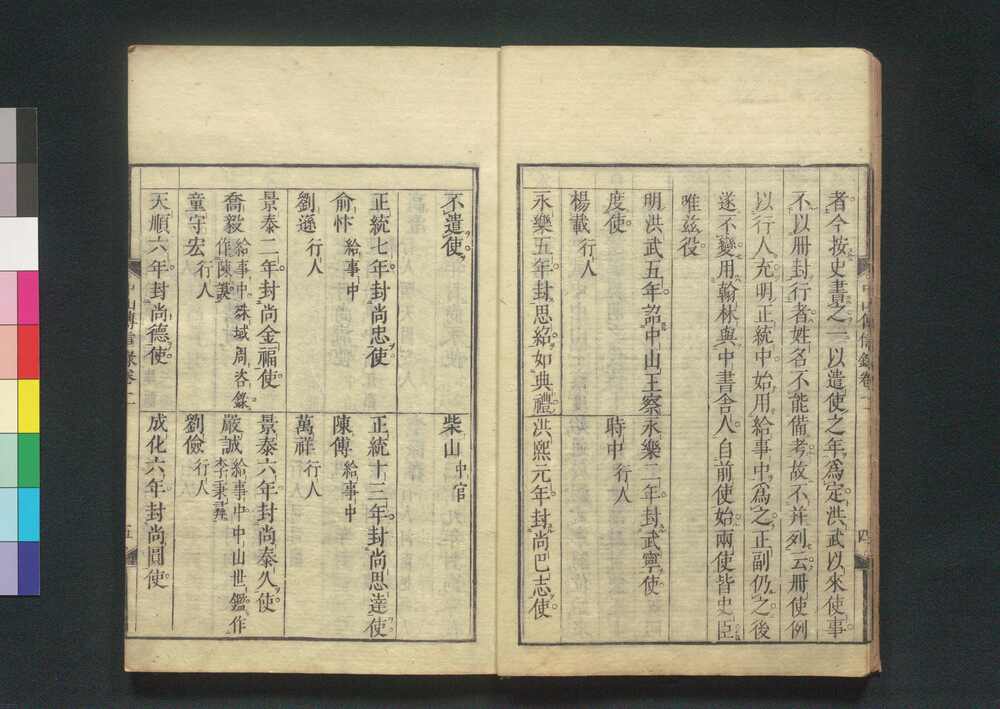 者今按史書之一以遣使之年爲定洪武以來使事
不以冊封行者姓名不能備考故不并列云冊使例
以行人充明正統中始用給事中爲之正副仍之後
遂不變用翰林與中書舍人自前使始兩使皆史臣
唯兹役
明洪武五年詔中山王察
度使
楊載 行人
永樂二年封武寧使
時中 行人
永樂五年封思紹如典禮
洪熙元年封尚巴志使
不遣使
柴山 中官
正統七年封尚忠使
俞忭 給事中
劉遜 行人
正統十三年封尚思達使
陳傅 給事中
萬祥 行人
景泰二年封尚金福使
喬毅 給事中殊域周咨錄
作陳謨
童守宏 行人
景泰六年封尚泰久使
嚴誠 給事中中山世鑑作
李秉彜
劉儉 行人
天順六年封尚德使
成化六年封尚圓使
中山傳信錄卷二
四
五